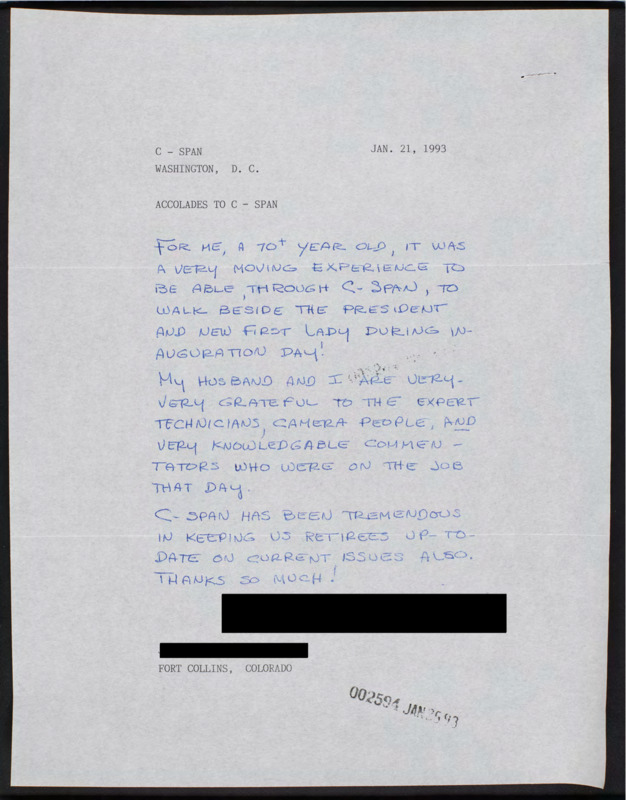 C - SPAN
JAN. 21, 1993
WASHINGTON, D. C.
ACCOLADES TO C - SPAN
FOR ME, A 70+ YEAR OLD, IT WAS
A VERY MOVING EXPERIENCE TO
BE ABLE, THROUGH C-SPAN, TO
WALK BESIDE THE PRESIDENT
AND NEW FIRST LADY DURING IN-
AUGURATION DAY!
MY HUSBAND AND I ARE VERY-
VERY GRATEFUL TO THE EXPERT
TECHNICIANS, CAMERA PEOPLE, AND
VERY KNOWLEDGABLE COMMEN -
TATORS WHO WERE ON THE JOB
THAT DAY.
C-SPAN HAS BEEN TREMENDOUS
IN KEEPING US RETIREES UP-TO-
DATE ON CURRENT ISSUES ALSO.
THANKS SO MUCH!
FORT COLLINS, COLORADO
002594 JAN 93